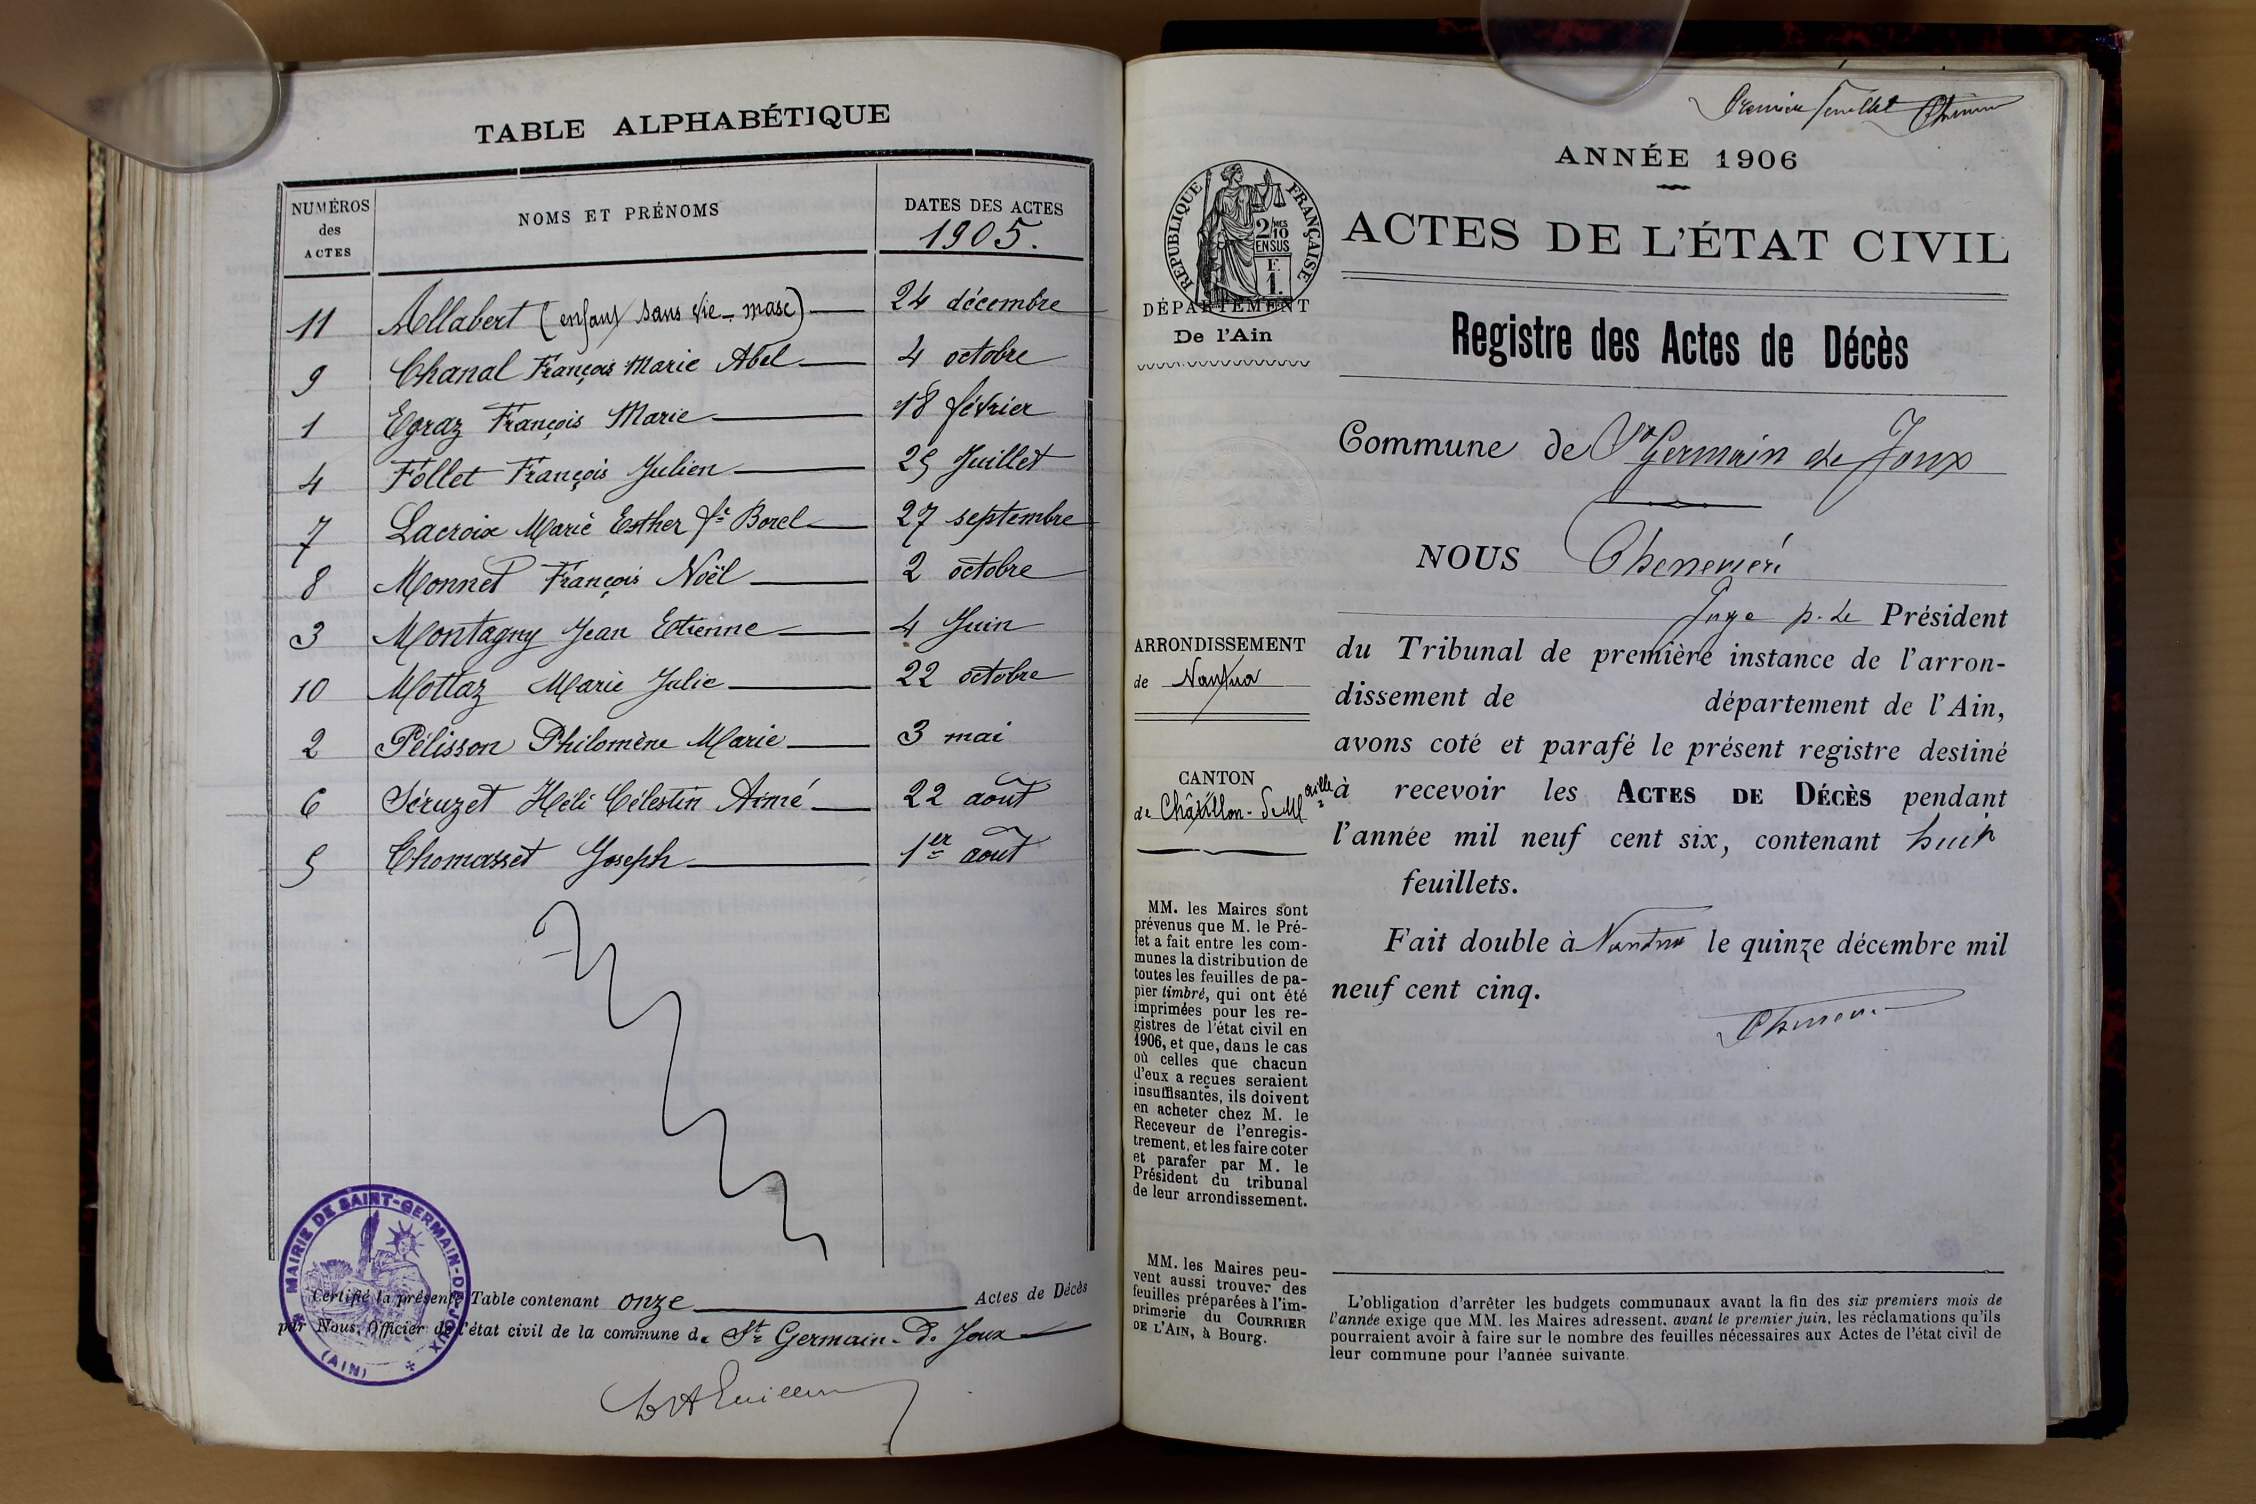 TABLE ALPHABÉTIQUE
NUMÉROS
des
ACTES
NOMS ET PRÉNOMS
DATES DES ACTES
1905.
11 Allabert (enfant sans vie - masc) 24 décembre
9 Chanal François Marie Abel 4 octobre
1 Egraz François Marie 18 février
4 Follet François Julien 25 Juillet
7 Lacroix Marie Esther fe Borel 27 septembre
8 Monnet François Noël 2 octobre
3 Montagny Jean Etienne 4 Juin
10 Mottaz Marie Julie 22 octobre
2 Pélisson Philomène Marie 3 mai
6 Séruzet Héli Célestin Aimé 22 août
5 Thomasset Joseph 1er août
MAIRIE DE SAINT-GERMAIN-DE-JOUX
(AIN)
Certifié la présente Table contenant onze Actes de Décès
par Nous, Officier de l'état civil de la commune de St Germain-de Joux
Premier feuillet
ANNÉE 1906
RÉPUBLIQUE FRANÇAISE
2/10
MES
EN SUS
F.
1.
ACTES DE L'ÉTAT CIVIL
DÉPARTEMENT
De l'Ain
Registre des Actes de Décès
Commune de St Germain de Joux
NOUS
Juge p. le Président
du Tribunal de première instance de l'arron-
dissement de département de l'Ain,
avons coté et parafé le présent registre destiné
à recevoir les ACTES DE DÉCÈS pendant
l'année mil neuf cent six, contenant huit
feuillets.
Fait double à Nantua le quinze décembre mil
neuf cent cinq.
ARRONDISSEMENT
de Nantua
CANTON
de Châtillon-de-Michaille
MM. les Maires sont
prévenus que M. le Pré-
fet a fait entre les com-
munes la distribution de
toutes les feuilles de pa-
pier timbré, qui ont été
imprimées pour les re-
gistres de l'état civil en
1906, et que, dans le cas
où celles que chacun
d'eux a reçues seraient
insuffisantes, ils doivent
en acheter chez M. le
Receveur de l'enregis-
trement, et les faire coter
et parafer par M. le
Président du tribunal
de leur arrondissement.
MM. les Maires peu-
vent aussi trouver des
feuilles préparées à l'im-
primerie du COURRIER
DE L'AIN, à Bourg.
L'obligation d'arrêter les budgets communaux avant la fin des six premiers mois de
l'année exige que MM. les Maires adressent, avant le premier juin, les réclamations qu'ils
pourraient avoir à faire sur le nombre des feuilles nécessaires aux Actes de l'état civil de
leur commune pour l'année suivante.